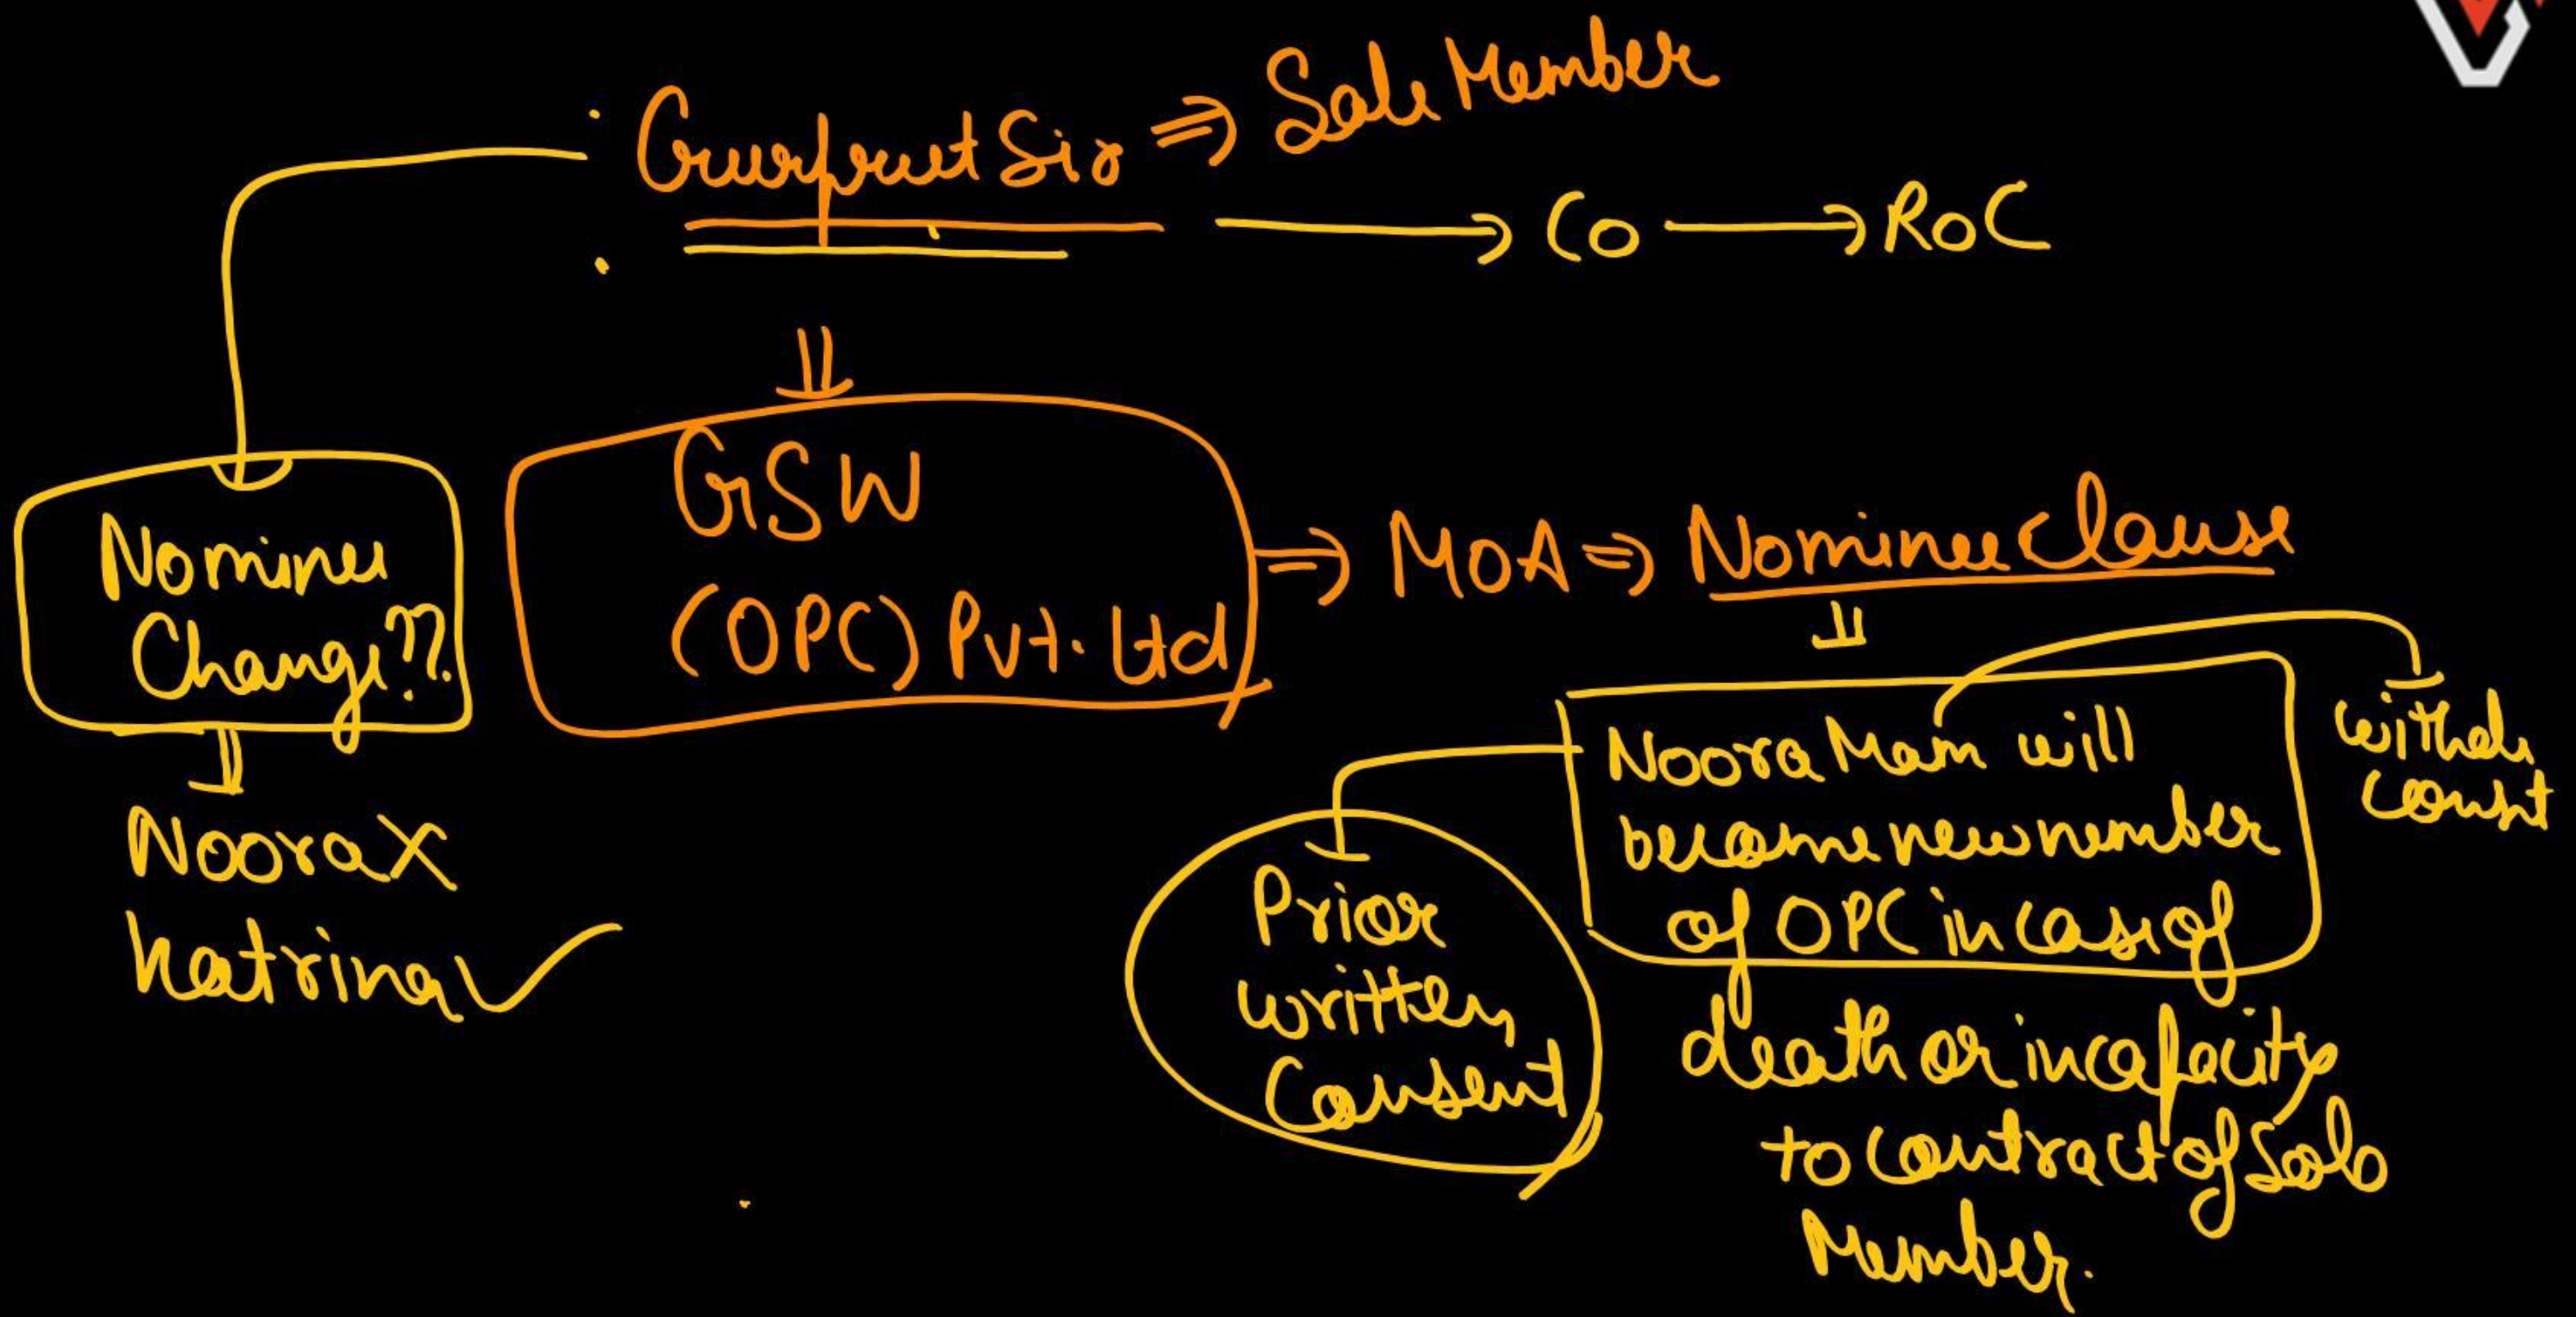 Gurpreet Sir ⇒ Sole Member
→ Co → RoC
GSW
(OPC) Pvt. Ltd
⇒ MOA ⇒ Nominee Clause
Nominee
Change??
Noora X
Katrina ✓
Noora Mam will
become new member
of OPC in case of
death or incapacity
to contract of Sole
Member.
Prior
written
Consent